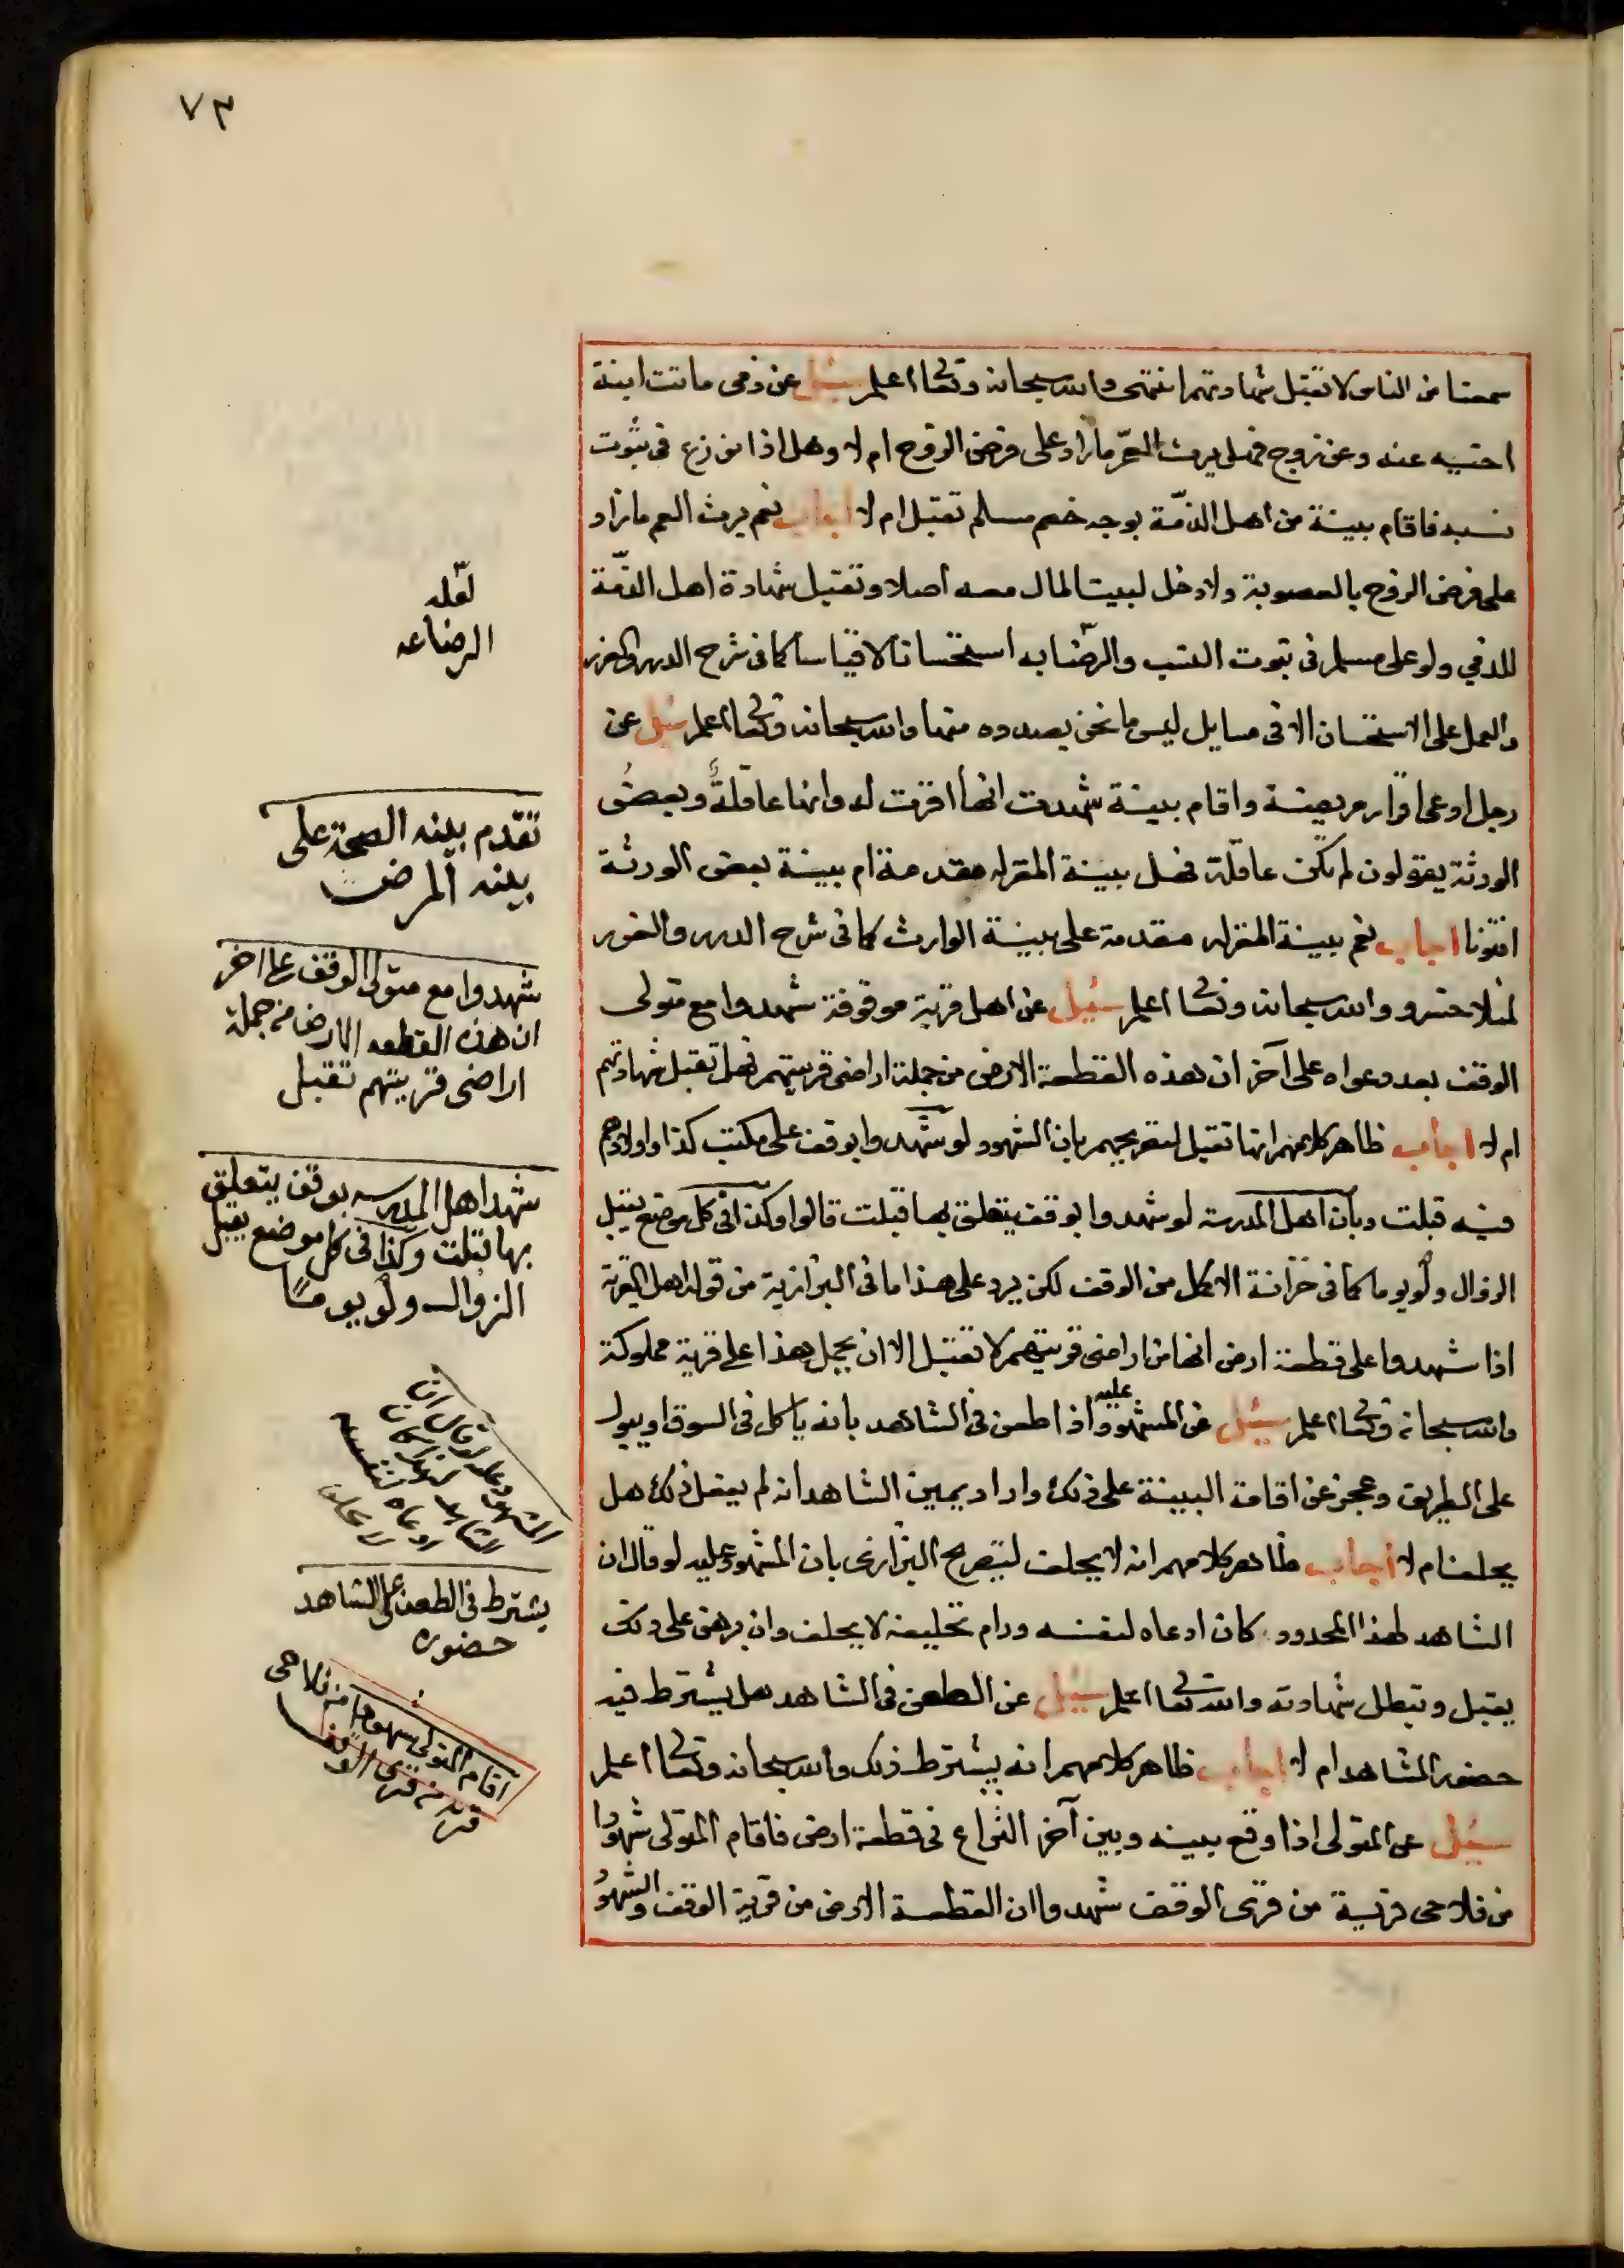 ٧٣
سمعنا من الناس لا تقبل شهادتهم انتهى والله سبحانه وتعالى اعلم سئل عن ذمي ماتت ابنة
اخيه عنه وعن زوج فهل يرث العم ما زاد على فرض الزوج ام لا وهل اذا نوزع في ثبوت
نسبه فاقام بينة من اهل الذمّة بوجه خصم مسلم تقبل ام لا اجاب نعم يرث العم ما زاد
على فرض الزوج بالعصوبة ولا دخل لبيت المال معه اصلا وتقبل شهادة اهل الذمّة
للذمي ولو على مسلم في ثبوت النسب والرضايه استحسانا لا قياسا كما في شرح الدرر والغرر
والعمل على الاستحسان الا في مسايل ليس ما نحن بصدده منها والله سبحانه وتعالى اعلم سئل عن
رجل ادعى اقرار مريضة واقام بينة شهدت انها اقرت له وانها عاقلةً وبعضُ
الورثة يقولون لم تكن عاقلة فهل بينة المقرله مقدمة ام بينة بعض الورثة
افتونا اجاب نعم بينة المقرله مقدمة على بينة الوارث كما في شرح الدرر والغرر
لمنلا خسرو والله سبحانه وتعالى اعلم سئيل عن اهل قرية موقوفة شهدوا مع متولى
الوقف بعد دعواه على آخر ان هذه القطعة الارض من جملة اراضي قريتهم فهل تقبل شهادتهم
ام لا اجاب ظاهر كلامهم انها تقبل لتصريحهم بان الشهود لو شهدوا بوقف على مكتب كذا واولادهم
فيه قبلت وبان اهل المدرسة لو شهدوا بوقف يتعلق بها قبلت قالوا وكذا في كل موضع يقبل
الزوال ولو يوما كما في خزانة الاكمل من الوقف لكن يرد على هذا ما في البزازية من قوله اهل القرية
اذا شهدوا على قطعة ارض انها من اراضي قريتهم لا تقبل الا ان يحمل هذا على قرية مملوكة
والله سبحانه وتعالى اعلم سئيل عن المشهود عليه اذا طعن في الشاهد بانه ياكل في السوق او يبول
على الطريق وعجز عن اقامة البينة على ذلك واراد يمين الشاهد انه لم يفعل ذلك هل
يحلف ام لا اجاب ظاهر كلامهم انه لا يحلف لتصريح البزازي بان المشهود عليه لو قال ان
الشاهد لهذا المحدود كان ادعاه لنفسه ورام تحليفه لا يحلف وان برهن على ذلك
يقبل وتبطل شهادته والله تعالى اعلم سئيل عن الطعن في الشاهد هل يشترط فيه
حضور الشاهد ام لا اجاب ظاهر كلامهم انه يشترط ذلك والله سبحانه وتعالى اعلم
سئيل عن المتولى اذا وقع بينه وبين آخر النزاع في قطعة ارض فاقام المتولى شهودا
من فلاحي قرية من قرى الوقف شهدوا ان القطعة الارض من قرية الوقف والشهود
لعّله
الرضاعه
تقدم بينه الصحة على
بينه المرض
شهدوا مع متولى الوقف على اخر
ان هذه القطعه الارض من جملة
اراضى قريتهم تقبل
شهد اهل المدرسه بوقف يتعلق
بها قبلت وكذا في كل موضع يقبل
الزوال ولو يوما
المشهود عليه لو قال ان
الشاهد لهذا كان
ادعاه لنفسه
لا يحلف
يشترط في الطعن على الشاهد
حضوره
اقام المتولى شهودا من فلاحى
قريه من قرى الوقف